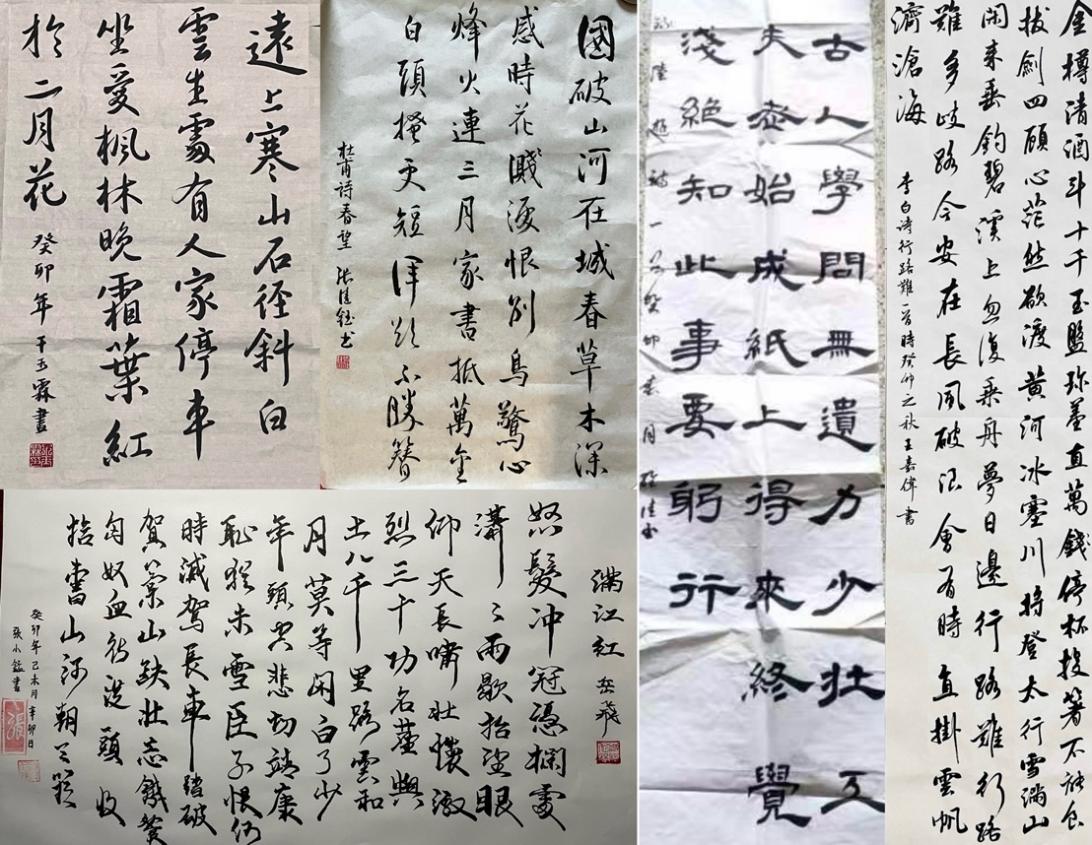 遠上寒山石径斜白
雲生處有人家停車
坐愛楓林晚霜葉紅
於二月花
癸卯年 玉霖書
國破山河在城春草木深
感時花濺淚恨别鳥驚心
烽火連三月家書抵萬金
白頭搔更短渾欲不勝簪
杜甫詩春望 張佳鈺書
滿江紅 岳飛
怒髮冲冠憑欄處
瀟〻雨歇抬望眼
仰天長嘯壯懷激
烈三十功名塵與
土八千里路雲和
月莫等闲白了少
年頭空悲切靖康
恥猶未雪臣子恨何
時滅駕長車踏破
賀蘭山缺壯志饑餐
匈奴血待從頭收
拾舊山河朝天闕
癸卯年己未月辛卯日
張小書
古人學問無遺力少壯工
夫老始成紙上得來終覺
淺絕知此事要躬行
錄陸游詩一首癸卯月佳
金樽清酒斗十千玉盤珍羞直萬錢停杯投箸不能食
拔劍四顧心茫然欲渡黃河冰塞川將登太行雪滿山
闲來垂釣碧溪上忽復乘舟夢日邊行路難行路
難多岐路今安在長風破浪會有時直掛雲帆
濟滄海
李白詩行路難一首時癸卯之秋王嘉偉書